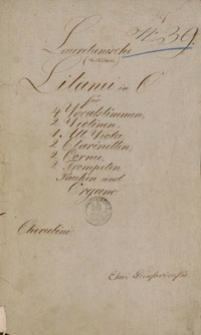 No 39.
Lauretanische
Litanie in C
für
4 Vocalstimmen,
2 Violinen,
1 Alt Viola
2 Clarinetten,
2 Corni,
2 Trompeten
Pauken und
Organo
Cherubini